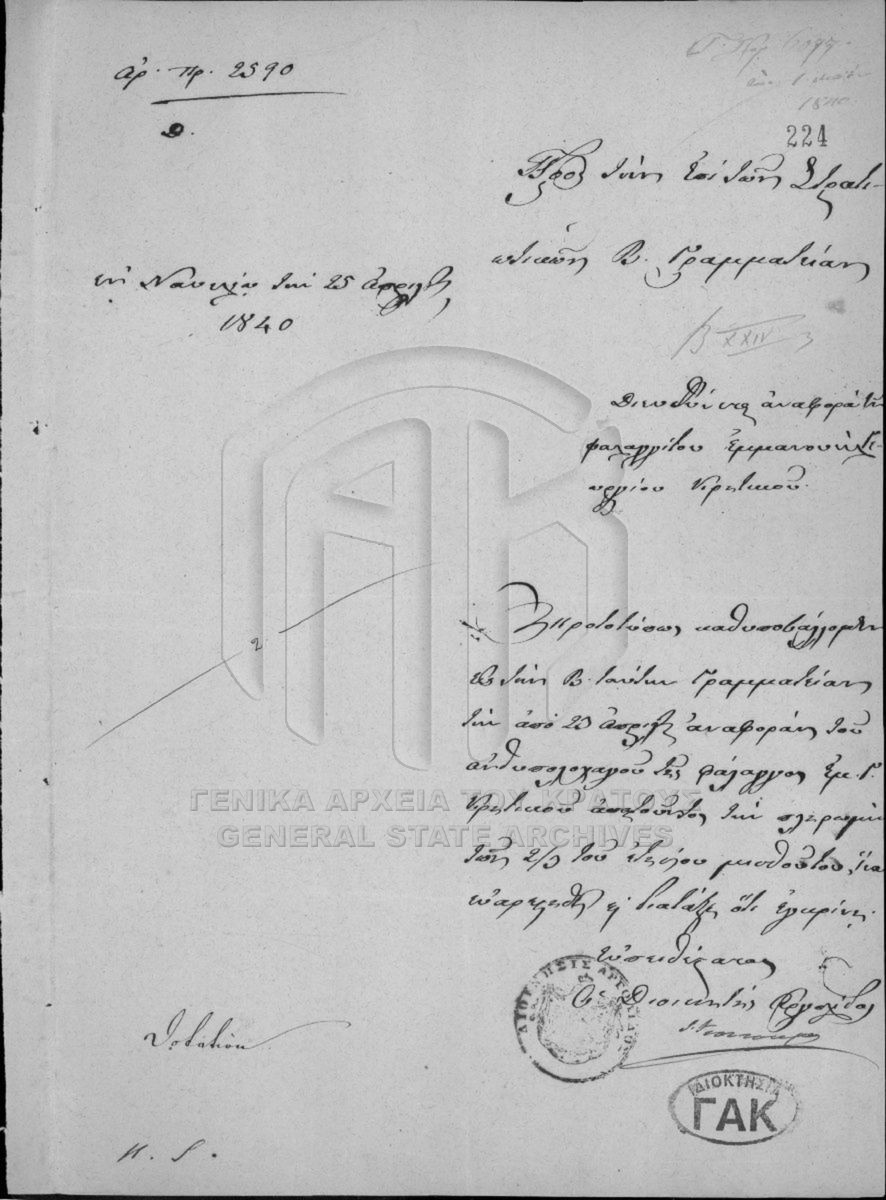 αρ. πρ. 2590
1840
224
Προς την επί των Στρατι-
ωτικών Β. Γραμματείαν
εν Ναυπλίω την 25 Απριλίου
1840
B XXIV
Διευθύνεται αναφορά του
φαλαγγίτου Εμμανουήλ Γε-
ωργίου Κρητικού.
2
Πρωτοτύπως καθυποβάλλομεν
εις την Β. ταύτην Γραμματείαν
την από 23 Απριλ. αναφοράν του
ανθυπολοχαγού της φάλαγγος Εμ. Γ.
Κρητικού απαιτούντος την πληρωμήν
των 2/3 του ετησίου μισθού του, ίνα
ευαρεστηθή να διατάξη ότι εγκρίνει.
Ευπειθέστατος
Ο Διοικητής Αργολίδος
ΔΙΟΙΚΗΣΙΣ ΑΡΓΟΛΙΔΟΣ
ΓΕΝΙΚΑ ΑΡΧΕΙΑ ΤΟΥ ΚΡΑΤΟΥΣ
GENERAL STATE ARCHIVES
ΙΔΙΟΚΤΗΣΙΑ
ΓΑΚ